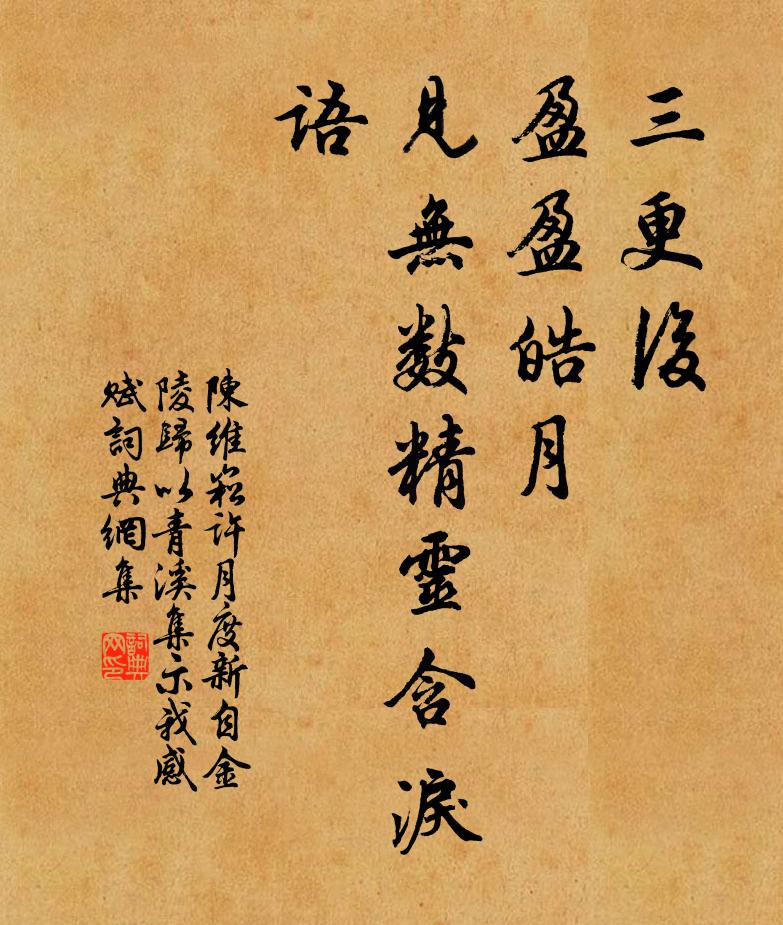 三更後
盈盈皓月
見無數精靈含淚
語
陳維崧許月度新自金
陵歸以青溪集示我感
賦詞典網集
詞典
网印